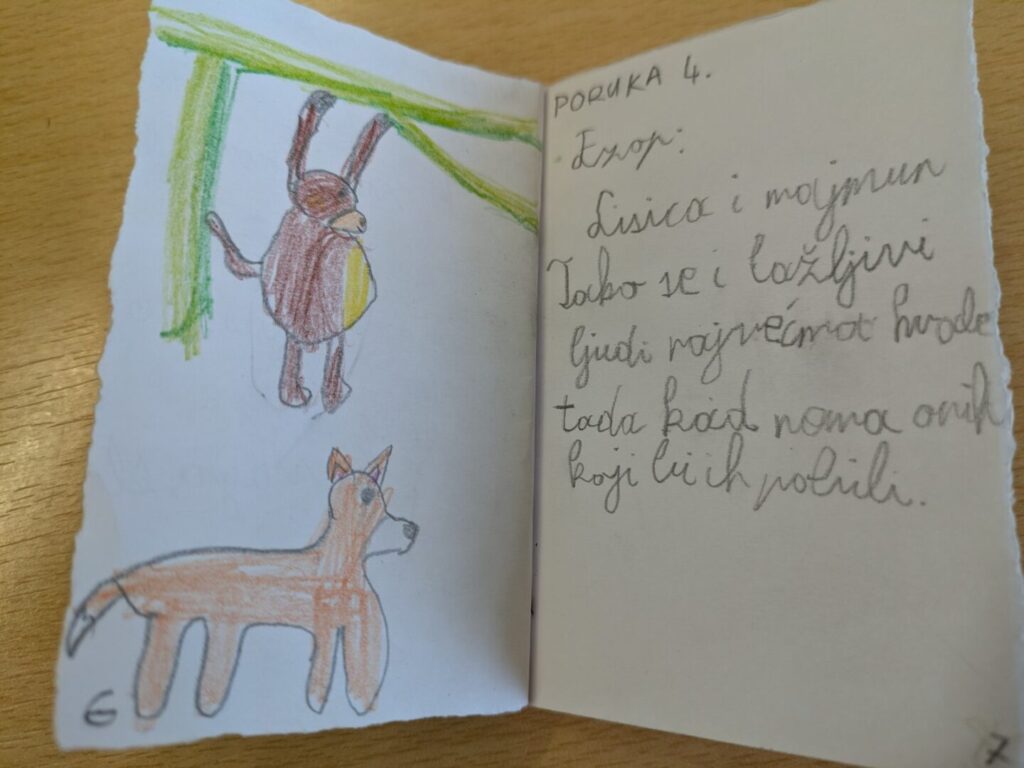 6
PORUKA 4.
Ezop:
Lisica i majmun
Tako se i lažljivi
ljudi najvećma hvale
tada kad nema onih
koji bi ih pobili.
7